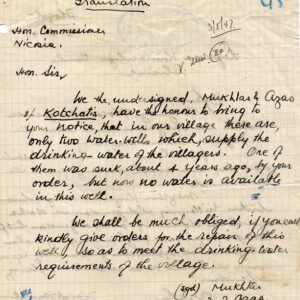 Translation
98
Hon. Commissioner
Nicosia.
3/5/47.
Hon. Sir,
We the undersigned, Mukhtar & Azas
of Kotchatis, have the honour to bring to
your notice, that in our village there are,
only two water-wells which, supply the
drinking-water of the villagers. One of
them was sunk, about 4 years ago, by your
order, but now no water is available
in this well.
We shall be much obliged, if you will
kindly give orders for the repair of this
well, so as to meet the drinking-water
requirements of the village.
(sgd) Mukhtar
2 Azas